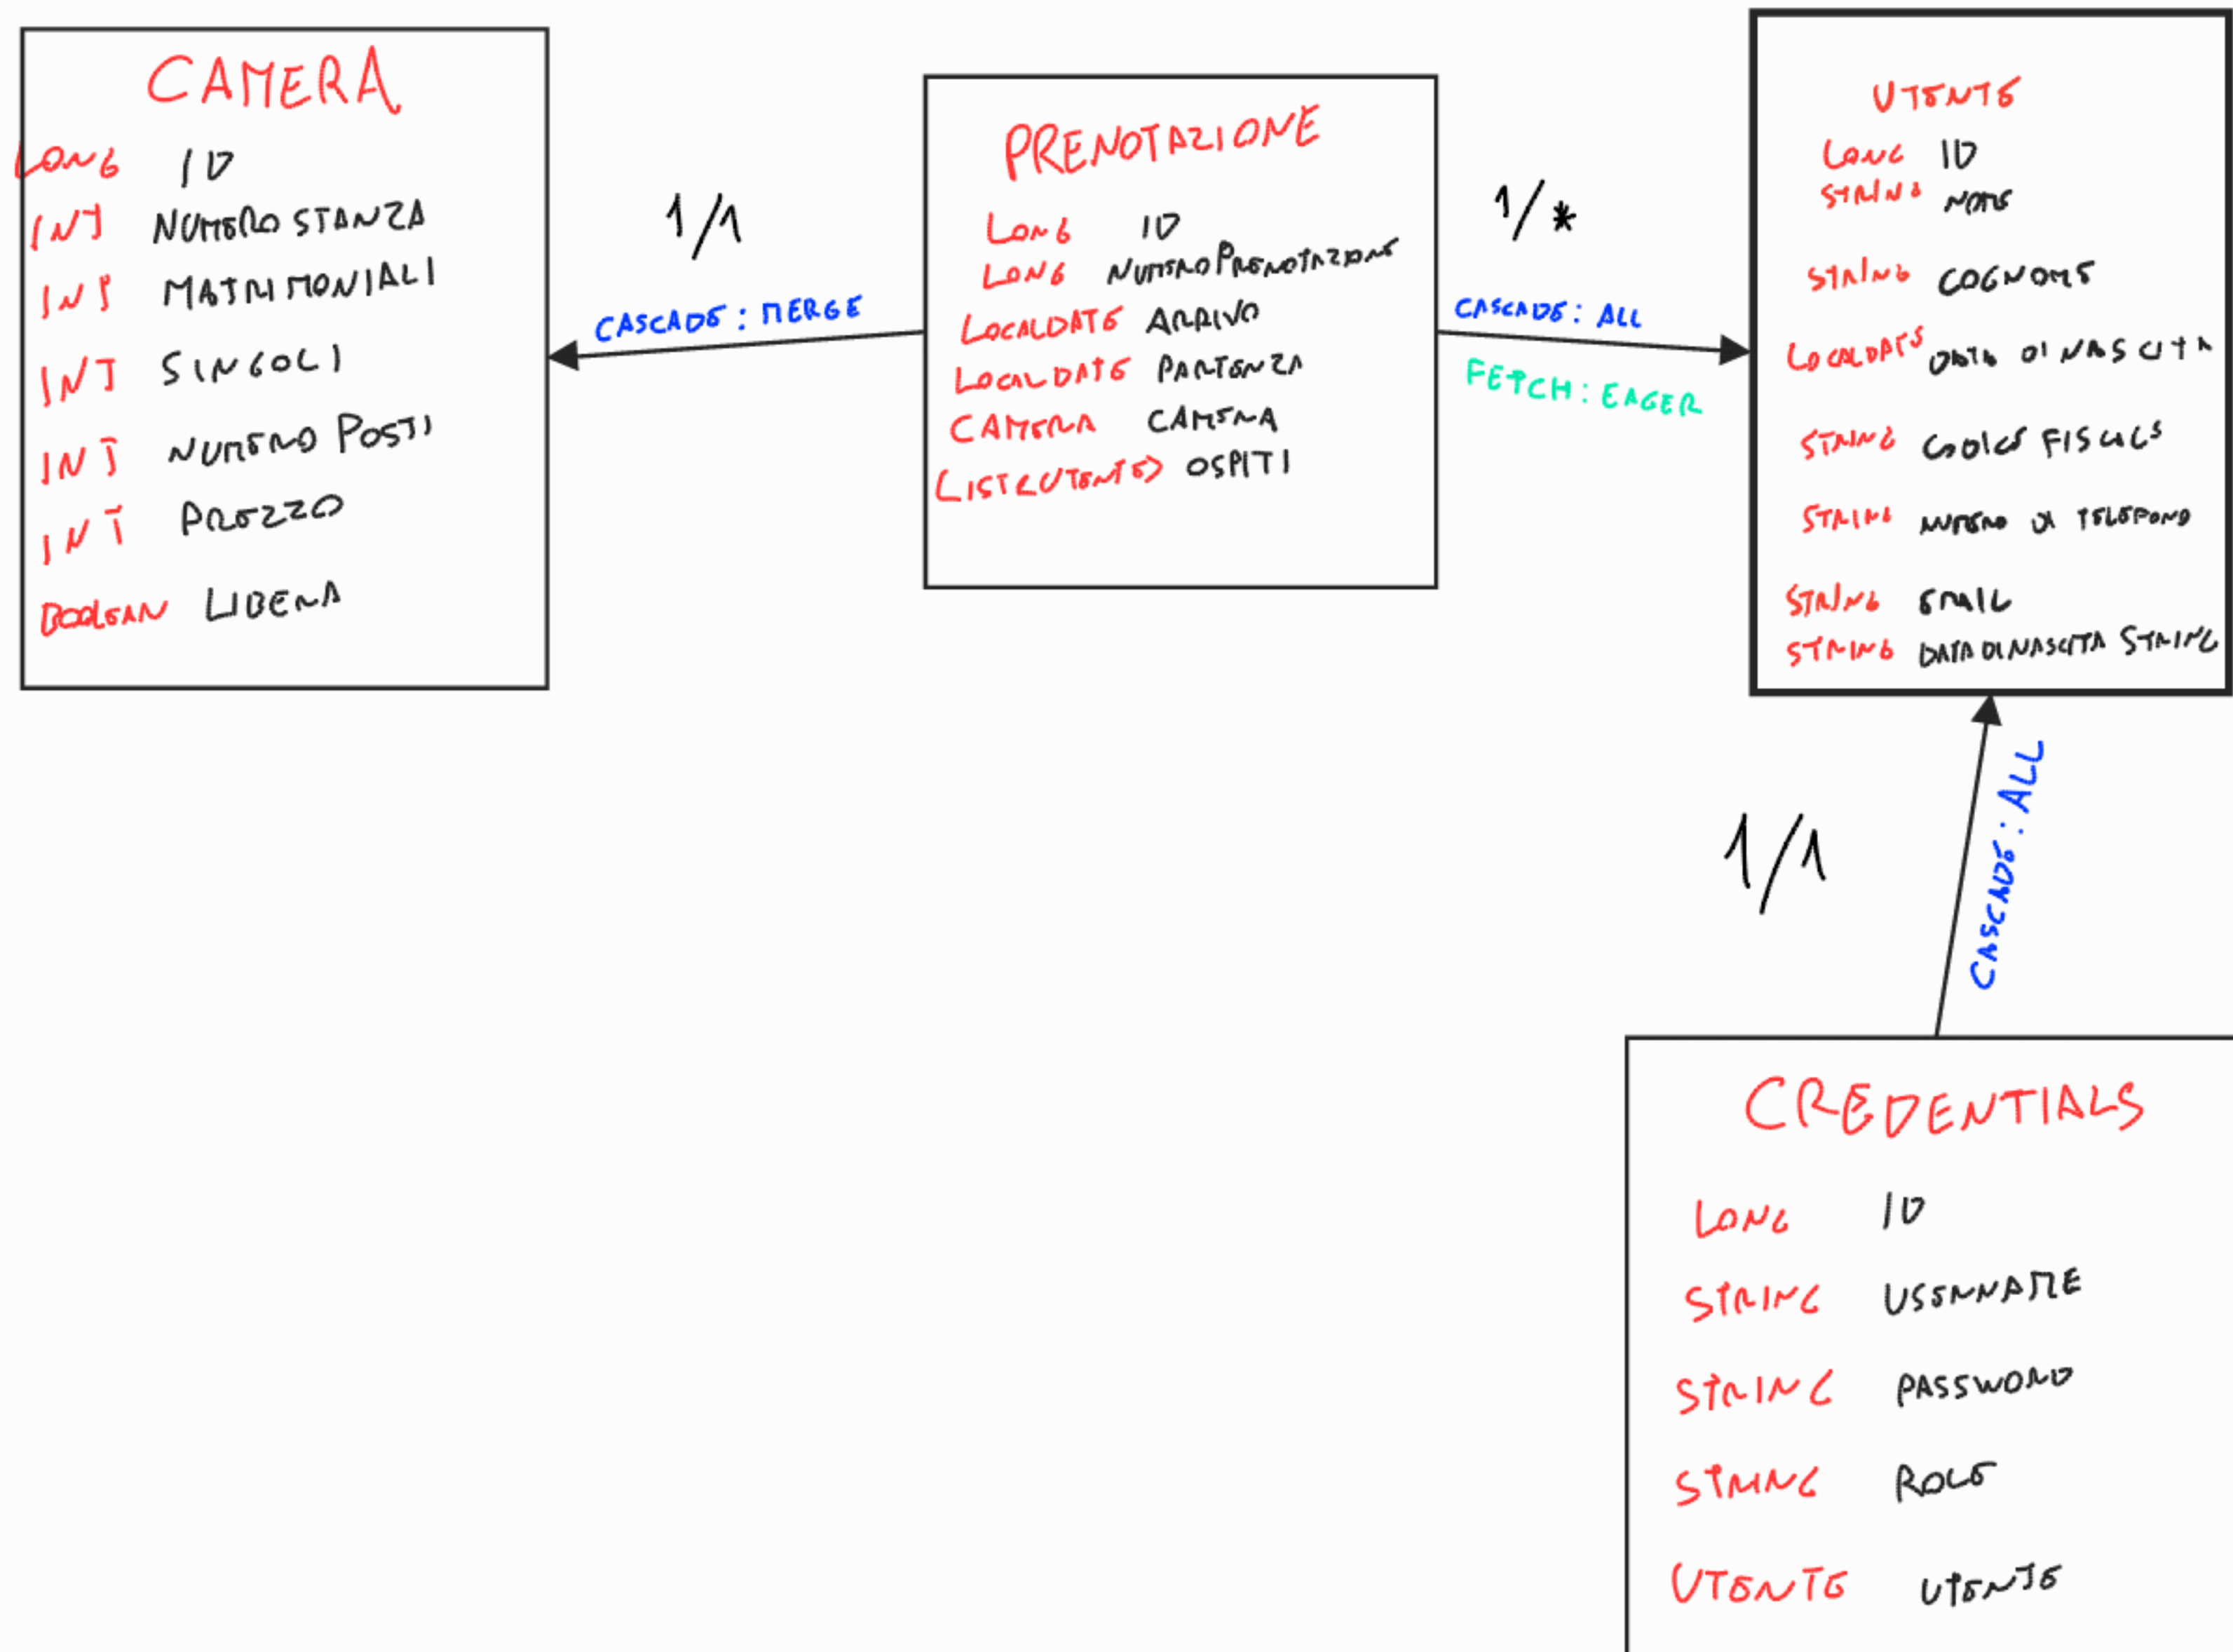 CAMERA
LONG ID
INT NUMERO STANZA
INT MATRIMONIALI
INT SINGOLI
INT NUMERO POSTI
INT PREZZO
BOOLEAN LIBERA
1/1
CASCADE: MERGE
PRENOTAZIONE
LONG ID
LONG NUMERO PRENOTAZIONE
LOCALDATE ARRIVO
LOCALDATE PARTENZA
CAMERA CAMERA
LIST<UTENTE> OSPITI
1/*
CASCADE: ALL
FETCH: EAGER
UTENTE
LONG ID
STRING NOME
STRING COGNOME
LOCALDATE DATA DI NASCITA
STRING CODICE FISCALE
STRING NUMERO DI TELEFONO
STRING EMAIL
STRING DATA DI NASCITA STRING
1/1
CASCADE: ALL
CREDENTIALS
LONG ID
STRING USERNAME
STRING PASSWORD
STRING ROLE
UTENTE UTENTE